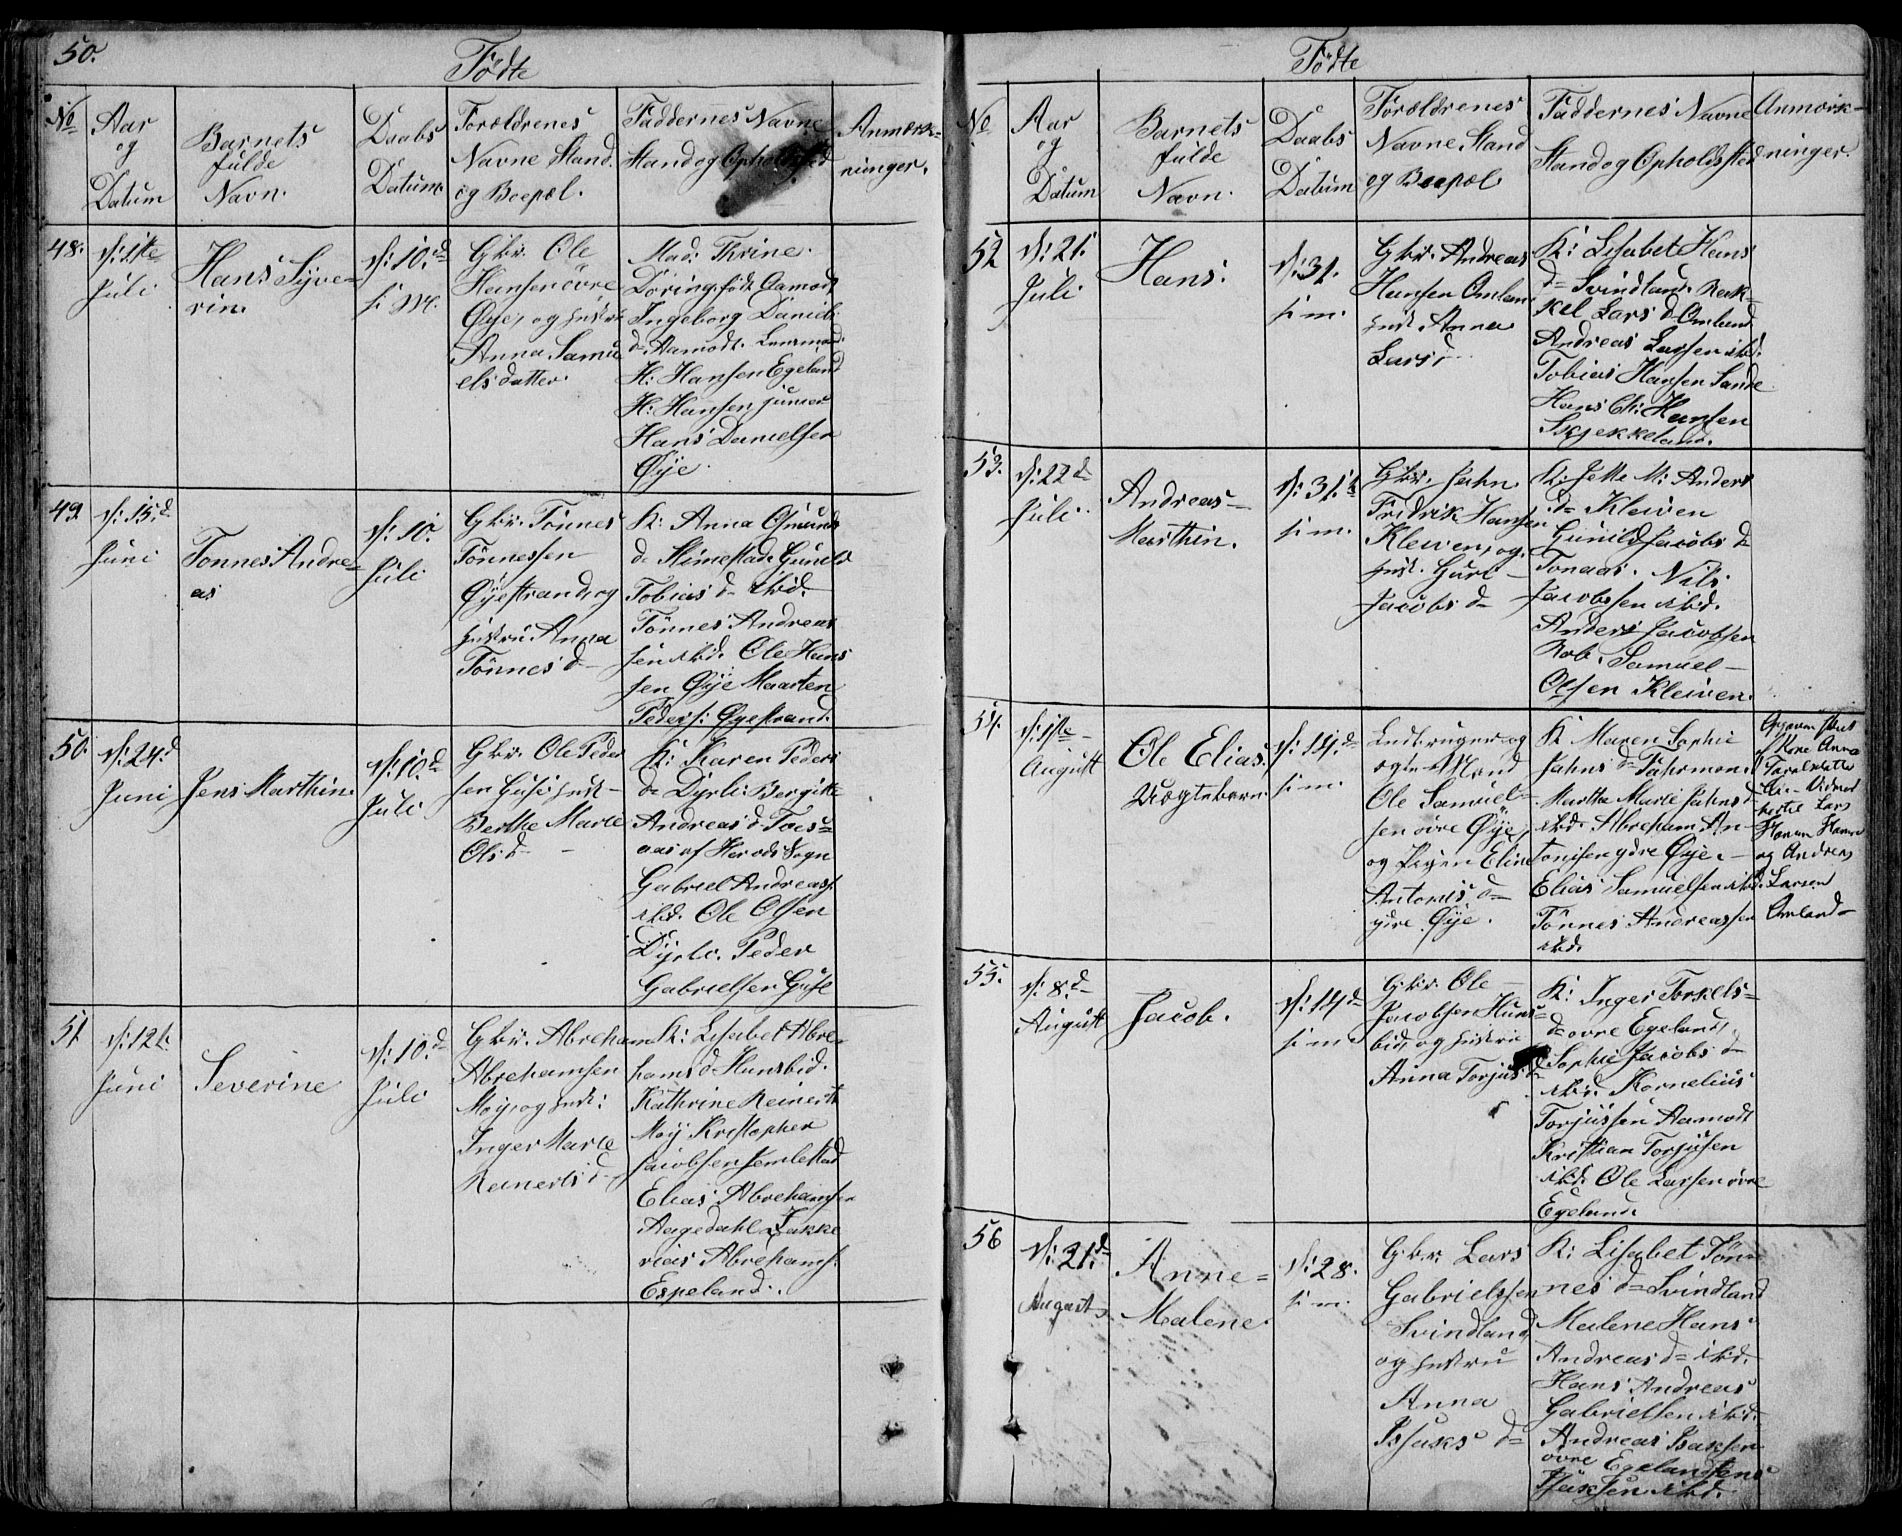 50.
Födte
No
Aar
og
Datum
Barnets
fulde
Navn.
Daabs
Datum.
Forældrenes
Navne Stand.
og Boepæl.
Faddernes Navne
Stand og Opholdsted
Anmærk-
ninger.
48.
d: 1ste
Juli
Hans Syve-
rin.
d: 10.d
s: M.
Gbr. Ole
Hansen övre
Öye, og Hustr.
Anna Samu
elsdatter.
Mad: Thrine
Döring, föd Aamodt
Ingeborg Daniels
d. Aamodt. Lensmand
H: Hansen Egeland
H: Hansen junior
Hans Danielsen
Öye.
49.
d: 15.d
Juni
Tonnes Andre-
as
d: 10.
Juli
Gbr. Tönnes
Tönnessen
Öyestrand, og
Hustru Anna
Tönnes d-
K: Anna Gmunds
d. Stimestad, Gunild
Tobias d- ibid.
Tönnes Andreas
sen ibid. Ole Hans
sen Öye Maarten
Peders: Öyestrand.
50.
d: 24.d
Juni
Jens Marthin.
d: 10.d
Juli
Gbr. Ole Peder
sen Guse Hust-
Berthe Marie
Ols d-
K: Karen Peders
d. Dyrli. Bergitte
Andreas d.
aas af Herods Sogn
Gabriel Andreass:
ibid. Ole Olsen
Dyrli. Peder
Gabrielsen Guse
51.
d: 12t.
Juni
Severine
d: 10.d
Juli
Gbr. Abreham
Abrehamsen
Moy, og Hust:
Inger Marie
Reinerts d-
K: Lisabet Abre-
hams d- Hunsbid.
Kathrine Reinerts
Moy Kristopher
Jacobsen Jemlestad
Elias Abrehamsen
Augedahl Zakke
rias Abrehams:
Espeland.
Födte
No
Aar
og
Datum
Barnets
fulde
Navn.
Daabs
Datum
Forældrenes
Navne Stand
og Boepæl
Faddernes Navne
Stand og Opholdsted
Anmærk-
ninger.
52
d: 21.
Juli
Hans.
d: 31.
s: m.
Gbr. Andreas
Hansen Omland
Hust. Anna
Lars d-
K: Lisabet Hans
d- Svindland. Rak-
kel Lars d. Omland
Andreas Larsen ibid.
Tobias Hansen Sande
Hans Ch: Hansen
Skjekkeland.
53.
d: 22d
Juli.
Andreas
Marthin.
d: 31.t
s: m.
Gbr. Jahn
Fridrik Hansen
Kleiven, og
Hust. Guri
Jacobs d-
K: Jette M: Anders
d- Kleiven
Gunild Jacobs d-
Tonaas. Nils
Jacobsen ibid.
Anders Jacobsen
Rob. Samuel
Olsen Kleiven.
54.
d: 1ste
August
Ole Elias
Uægtebarn
d: 14.d-
s: m.
Ledbruger og
ægte Mand
Ole Samuel-
sen övre Öye,
og Pigen Elin
Antonis d-
ydre Öye.
K Maren Sophie
Jahns d-
Marthe Marie Jahns d-
ibid. Abreham An-
tonisen ydre Öye.
Elias Samuelsen ibid.
Tönnes Andreassen
ibid.
Anna
Lars
og Andreas
Larsen
Omland
55.
d: 8.d-
August
Jacob.
d: 14d-
s: m
Gbr. Ole
Jacobsen Huns-
bid, og Hustru
Anna Torjus d-
K: Inger Torkels-
d- övre Egeland
Sophie Jacobs d-
ibid. Kornelius
Torjussen Aamodt
Kristian Torjusen
ibid. Ole Larsen övre
Egeland.
56
d: 21.d-
August
Anne-
Malene
d: 28.
s: m.
Gbr. Lars
Gabrielssen
Svindland
og Hustru
Anna
Issaks d-
K: Lisabet Tön-
nes d- Svindland
Malene Hans
Andreas d- ibid.
Hans Andreas
Gabrielsen ibid.
Andreas Isaksen
övre Egeland Stens
Isaksen ibid.